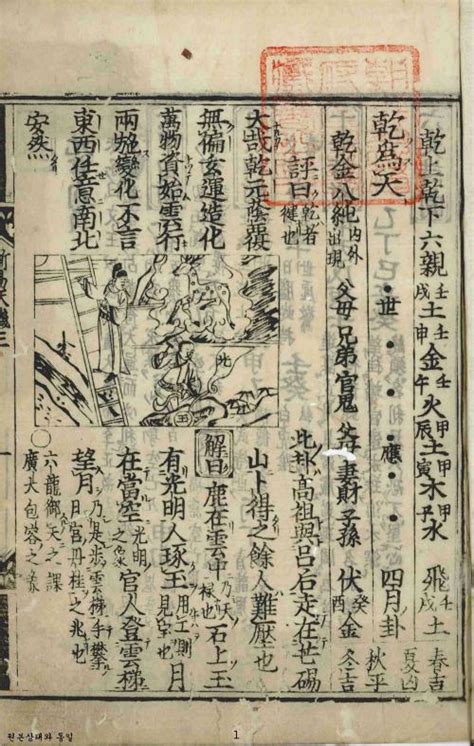 乾上乾下六親 壬戌土 壬申金 壬午火 甲辰土 甲寅木 甲子水 飛壬戌土 春吉 夏凶
乾為天 ●世●●應●● 四月卦 秋平
乾金八純 內外出現 父母 兄弟 官鬼 父母 妻財 子孫 伏癸酉金 冬吉
評曰 乾者健也
大哉乾元蔭覆
無偏玄運造化
萬物資始雲行
兩施變化不言
東西任意南北
安然
此卦高祖與呂后走在芒碭
山卜得之餘人難壓也
解曰 鹿在雲中 乃天祿也 石上玉
有光明人琢玉 用工則見宝也 月
在當空 光明之象 官人登雲梯
望月 乃是步雲梯手攀月宮丹桂之兆也
○六龍御天之課
廣大包容之象
원본상태와 동일
1